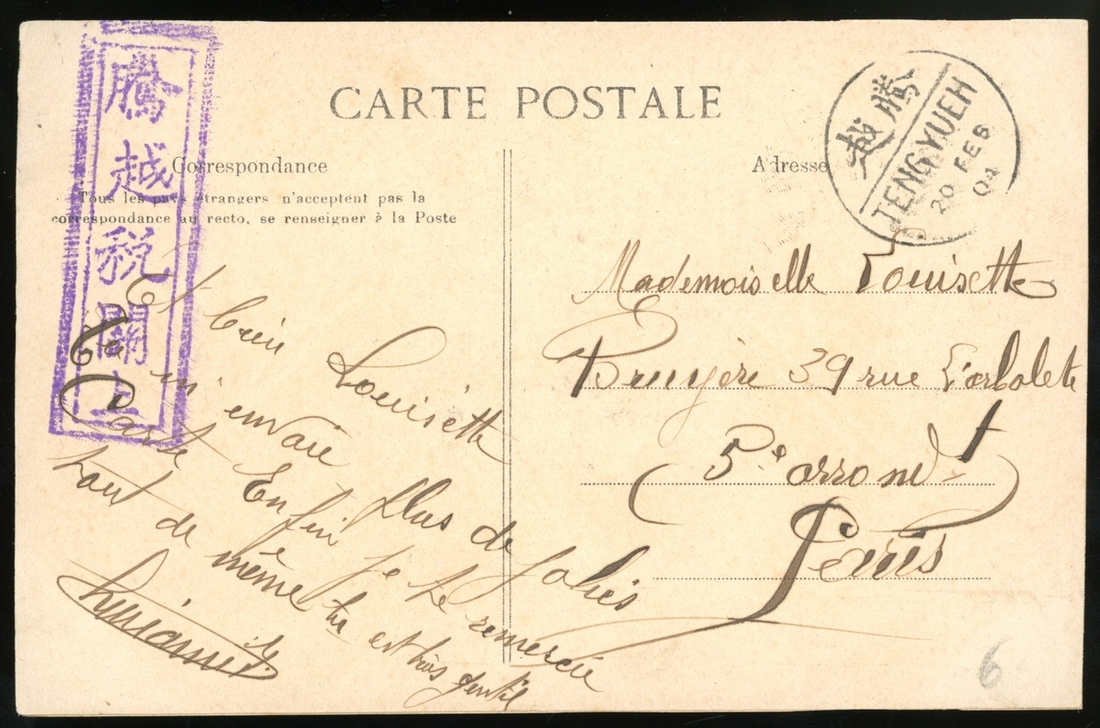 CARTE POSTALE
Correspondance
Tous les pays étrangers n'acceptent pas la
correspondance au recto, se renseigner à la Poste
騰越稅關
Et bien Louisette
tu m'envoie plus de jolies
Carte Enfin je te remercie
tout de même tu est très gentil
Adresse
騰越
TENGYUEH
20 FEB
04
Mademoiselle Louisette
Bruyère 39 rue L'arbalete
5.e arrond.t
Paris
6